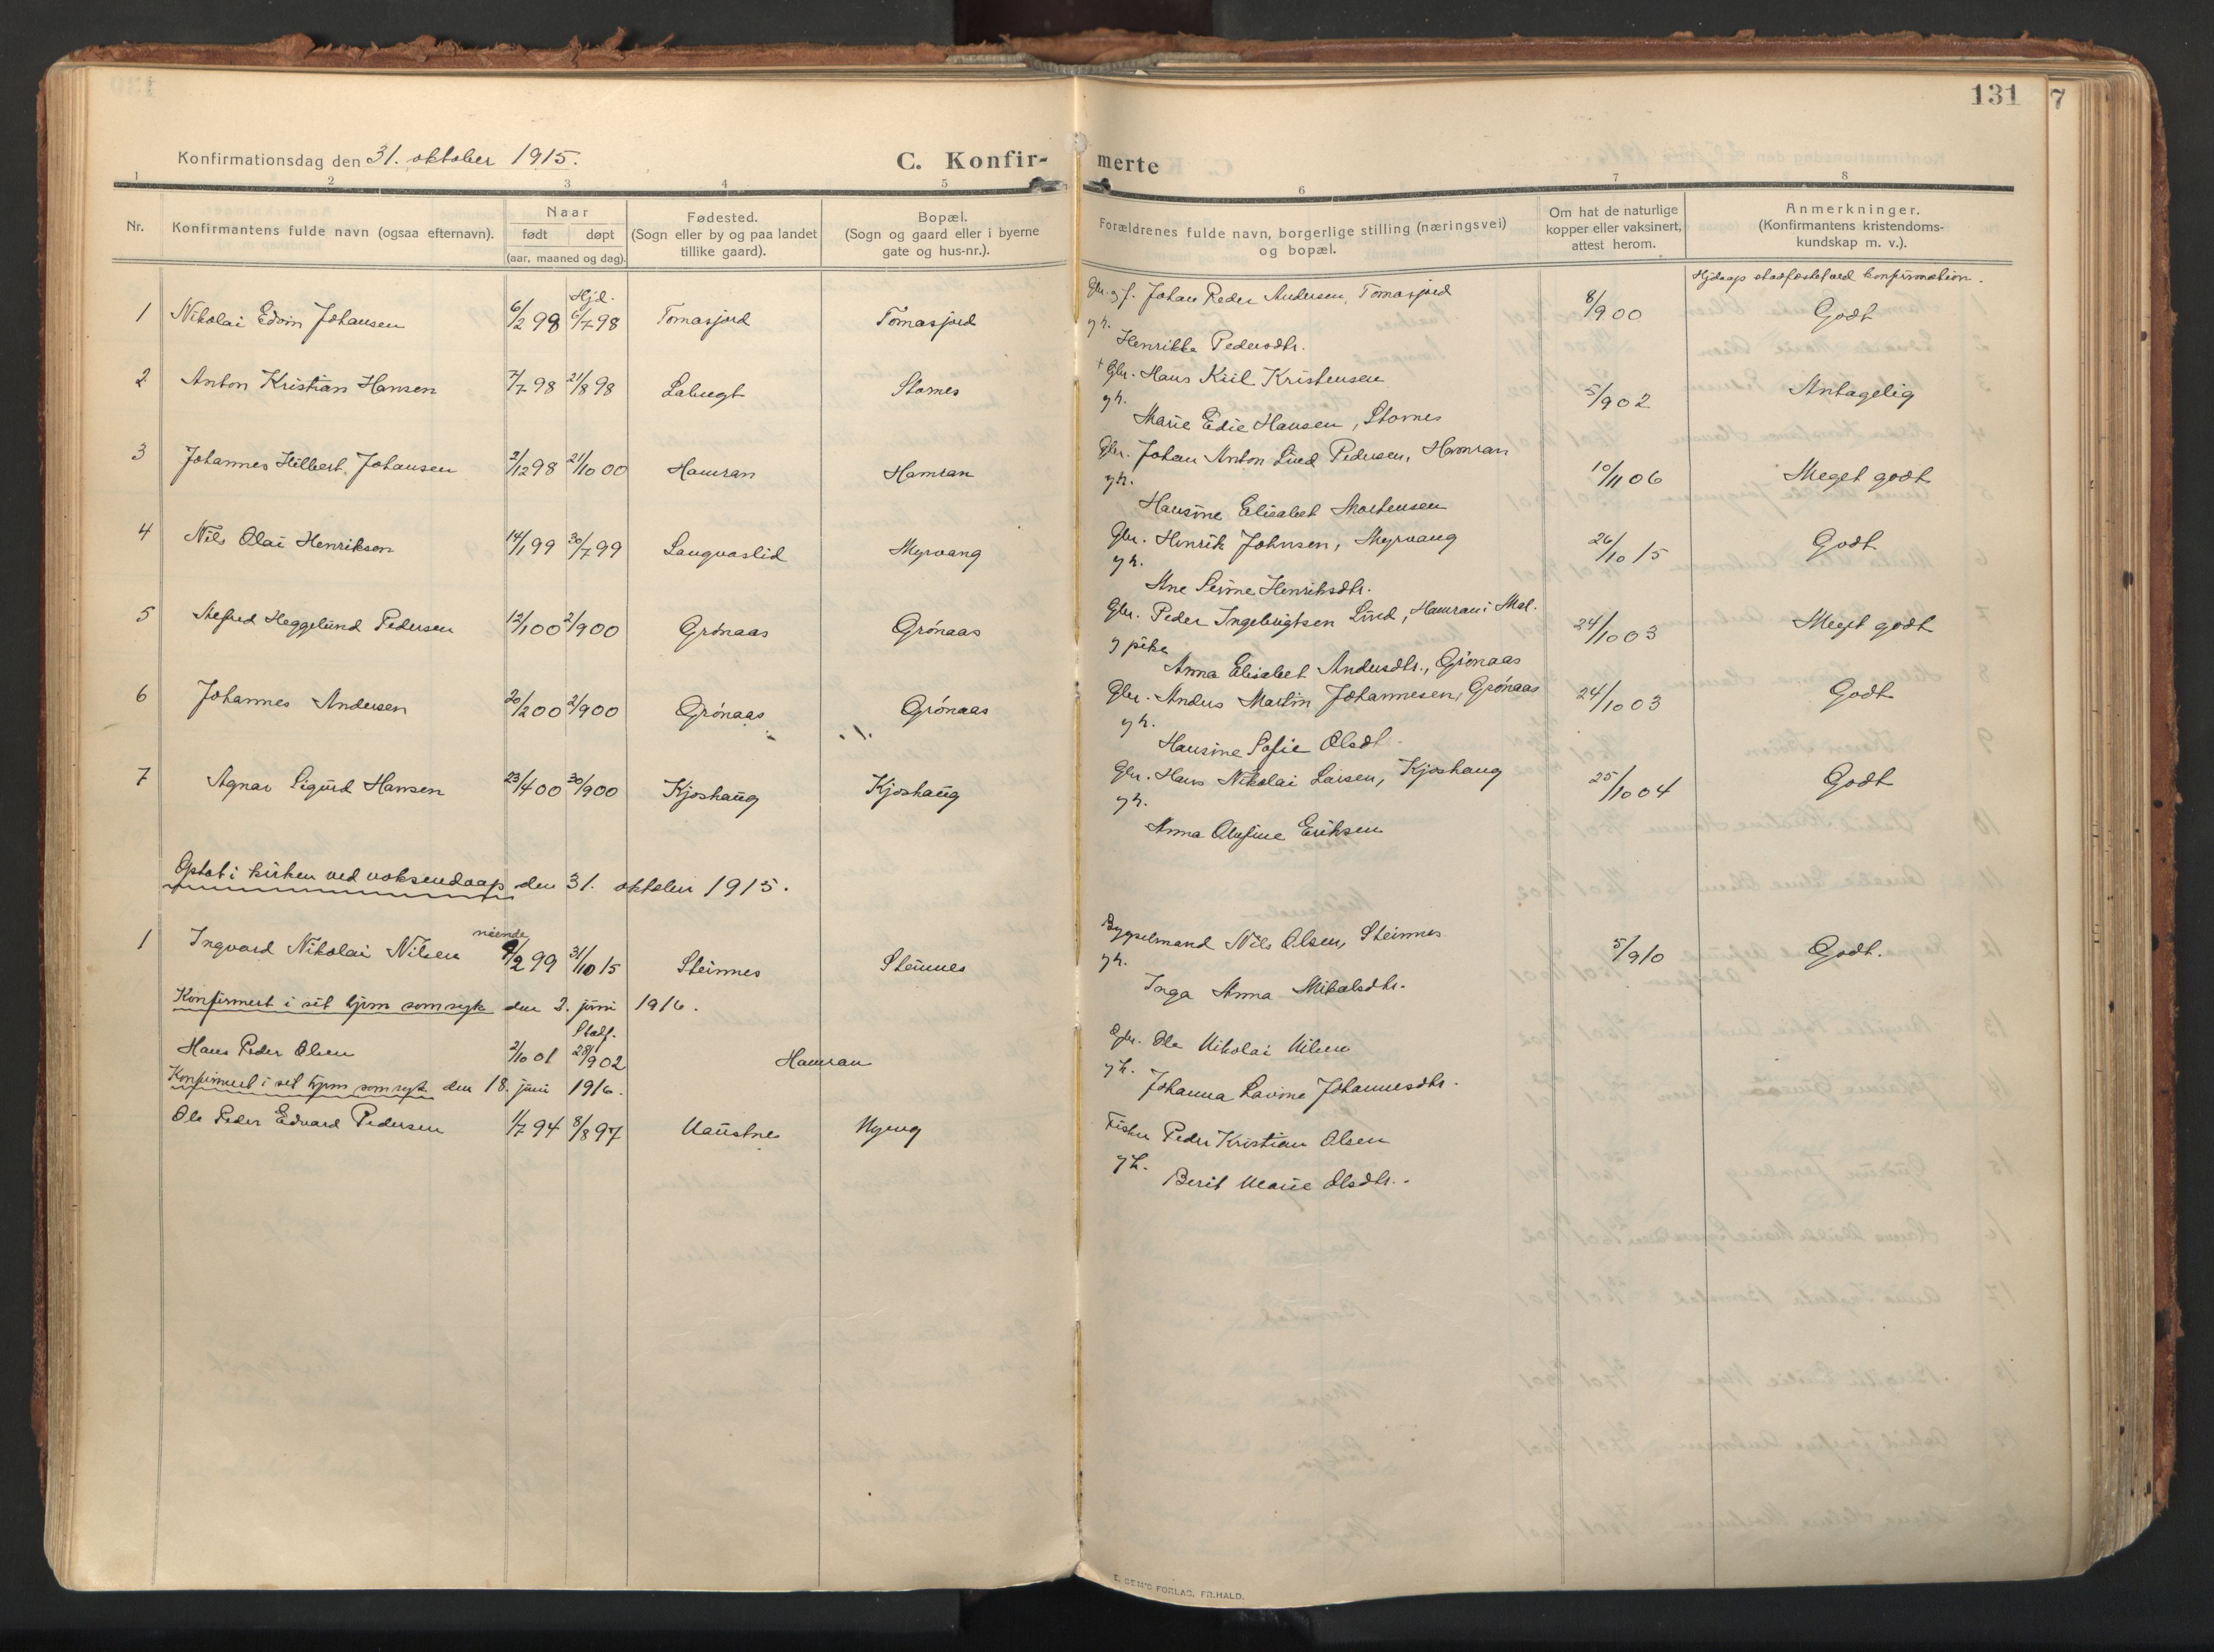 131
7
Konfirmationsdag den 31. oktober 1915.
C. Konfir- merte
1 2 3 4 5 6 7 8
Nr. Konfirmantens fulde navn (ogsaa efternavn). Naar født døpt (aar, maaned og dag). Fødested. (Sogn eller by og paa landet tillike gaard). Bopæl. (Sogn og gaard eller i byerne gate og hus-nr.). Forældrenes fulde navn, borgerlige stilling (næringsvei) og bopæl. Om hat de naturlige kopper eller vaksinert, attest herom. Anmerkninger. (Konfirmantens kristendoms-kundskap m. v.).
Hjdaap stadfæstet ved konfirmation.
Hjd.
1 Nikolai Edvin Johansen 6/2 98 6/7 98 Tomasjord Tomasjord Gbr. og f. Johan Peder Andersen, Tomasjord 8/9 00 Godt
g h. Henrikka Pedersdtr.
2 Anton Kristian Hansen 7/7 98 21/8 98 Labugt Stornes + Gbr. Hans Kiil Kristensen 5/9 02 Antagelig
g h. Marie Edie Hansen, Stornes
3 Johannes Hilbert Johansen 2/12 98 21/10 00 Hamran Hamran Gbr. Johan Anton Lind Pedersen, Hamran 10/11 06 Meget godt
g h. Hansine Elisabet Mortensen
4 Nils Olai Henriksen 14/1 99 30/7 99 Langvaslid Myrvang Gbr. Henrik Johnsen, Myrvang 26/10 15 Godt
g h. Ane Henriksdtr.
5 Alfred Heggelund Pedersen 12/1 00 2/9 00 Grønaas Grønaas Gbr. Peder Ingebrigtsen Lind, Hamran i Mal. 24/10 03 Meget godt
g pike Anna Elisabet Andersdtr., Grønaas
6 Johannes Andersen 20/2 00 2/9 00 Grønaas Grønaas Gbr. Anders Martin Johannesen, Grønaas 24/10 03 Godt
g h. Hansine Sofie Olsdt.
7 Agnar Sigurd Hansen 23/4 00 30/9 00 Kjoshaug Kjoshaug Gbr. Hans Nikolai Larsen, Kjoshaug 25/10 04 Godt
g h. Anna Olufine Eriksen
Optat i kirken ved voksendaap den 31. oktober 1915.
1 Ingvard Nikolai Nilsen niende 9/2 99 31/10 15 Steinnes Steinnes Bygselmand Nils Olsen, Steinnes 5/9 10 Godt.
g h. Inga Anna Mikalsdtr.
Konfirmert i sit hjem som syk den 2. juni 1916.
Stadf.
Hans Peder Olsen 2/10 01 28/9 02 Hamran Gbr. Ole Nikolai Nilsen
g h. Johanna Lavine Johannesdtr.
Konfirmert i sit hjem som syk den 18. juni 1916.
Ole Peder Edvard Pedersen 1/7 94 8/8 97 Naustnes Nyeng Fisker Peder Kristian Olsen
g h. Berit Marie Olsdtr.
E. SEM'S FORLAG, FR.HALD.